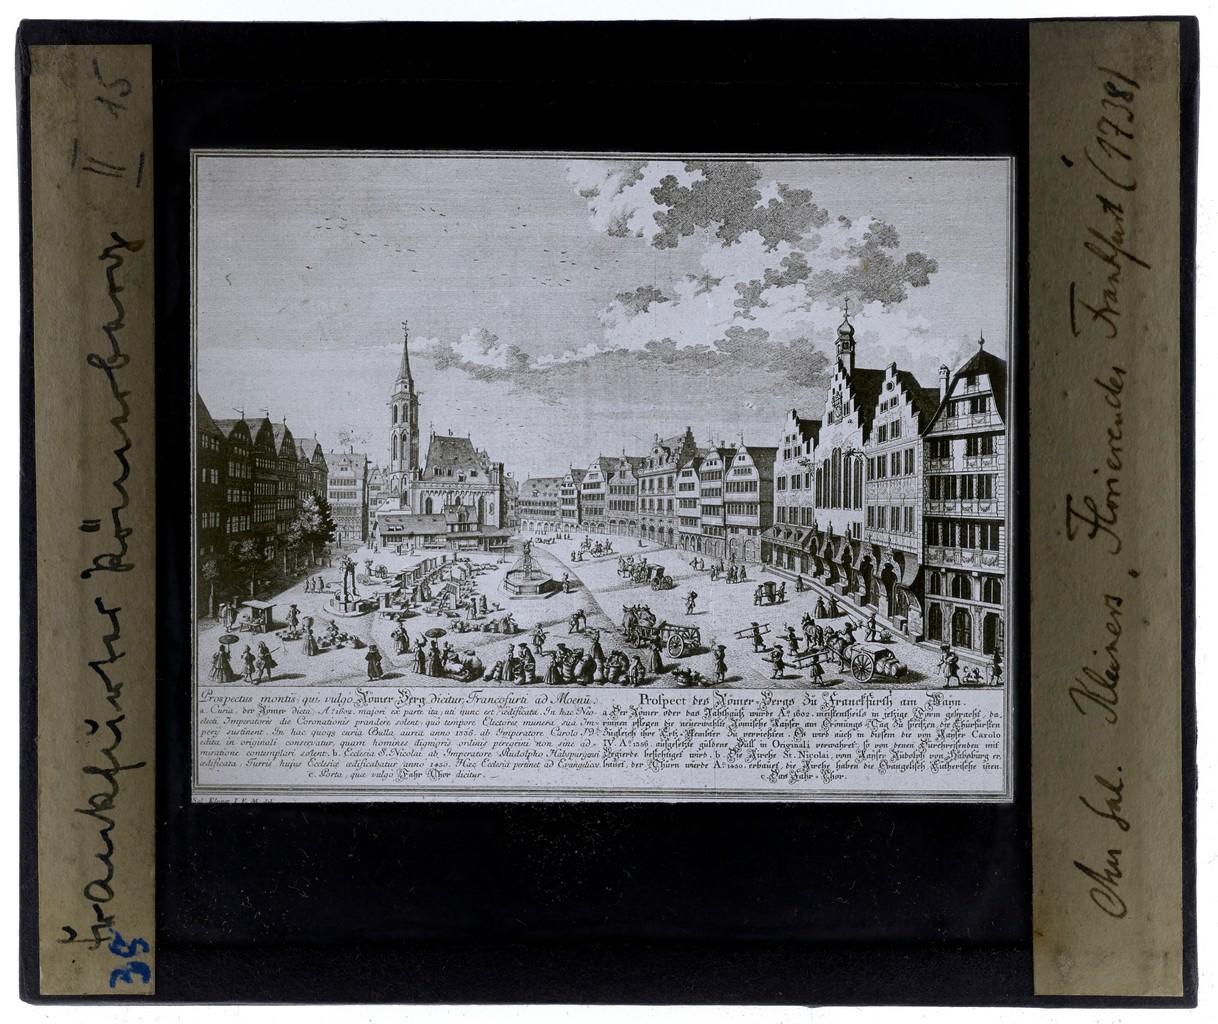 Frankfurter Römerberg II 15
38
Prospectus montis, qui vulgo Römer Berg dicitur, Francofurti ad Moenū.
a. Curia, der Römer dicta, Aº. 1602. majori ex parti ita, uti nunc est, ædificata. In hac Neo-
electi Imperatoris die Coronationis prandere solent, quô tempore Electores munera sua Im-
perij sustinent. In hac quoqs curia Bulla aurea anno 1356. ab Imperatore Carolo IVº
edita in originali conservatur, quam homines dignioris ordinis peregrini non sine ad-
miratione contemplari solent. b. Ecclesia S. Nicolai ab Imperatore Rudolpho Habspurgensi
ædificata, Turris hujus Ecclesiæ ædificabatur anno 1450. Hæc Ecclesia pertinet ad Evangelicos
c. Porta, quæ vulgò Fahr Thor dicitur.
Prospect des Römer-Bergs zu Franckfurth am Mayn.
a. Der Römer oder das Rathhauß wurde Aº. 1602. meistentheils in jetzige Form gebracht, da-
rinnen pflegen die neuerwählte Römische Kayser am Crönungs-Tag zu speisen, die Churfürsten
zugleich ihre Ertz-Aembter verrichten. Es wird auch in diesem die von Kayser Carolo
IV. Aº. 1356. aufgesetzte güldene Bull in Originali verwahret, so von denen Durchreissenden mit
Begierde besichtiget wird. b. Die Kirche S. Nicolai, vom Kayser Rudolph von Habspurg er-
bauet, der Thurn wurde Aº. 1450. erbauet, die Kirche haben die Evangelisch Lutherische inen.
c. Das Fahr-Thor.
Sal. Kleiner I. E. M. del.
Aus Sal. Kleiners „Florierendes Frankfurt“ (1738)